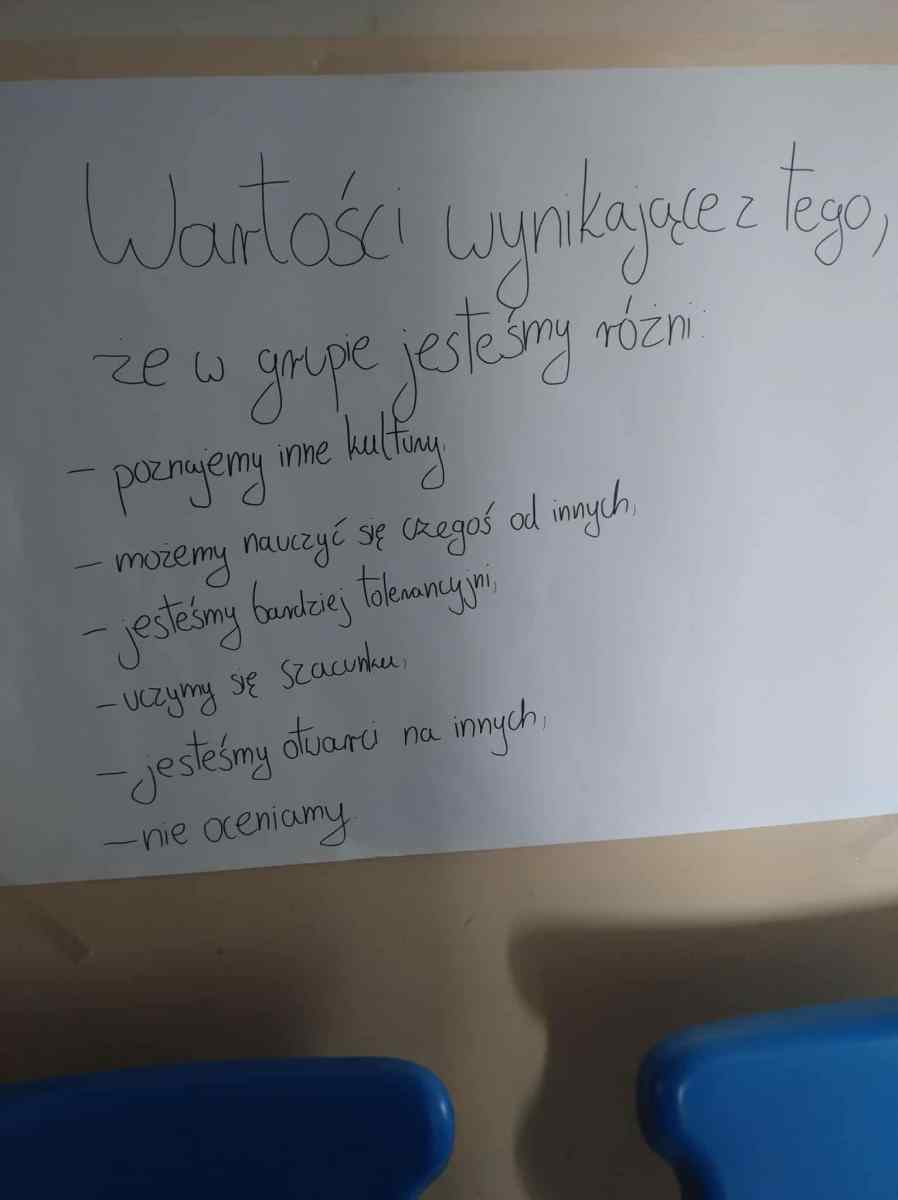 Wartości wynikające z tego,
że w grupie jesteśmy różni:
- poznajemy inne kultury,
- możemy nauczyć się czegoś od innych,
- jesteśmy bardziej tolerancyjni,
- uczymy się szacunku,
- jesteśmy otwarci na innych,
- nie oceniamy.